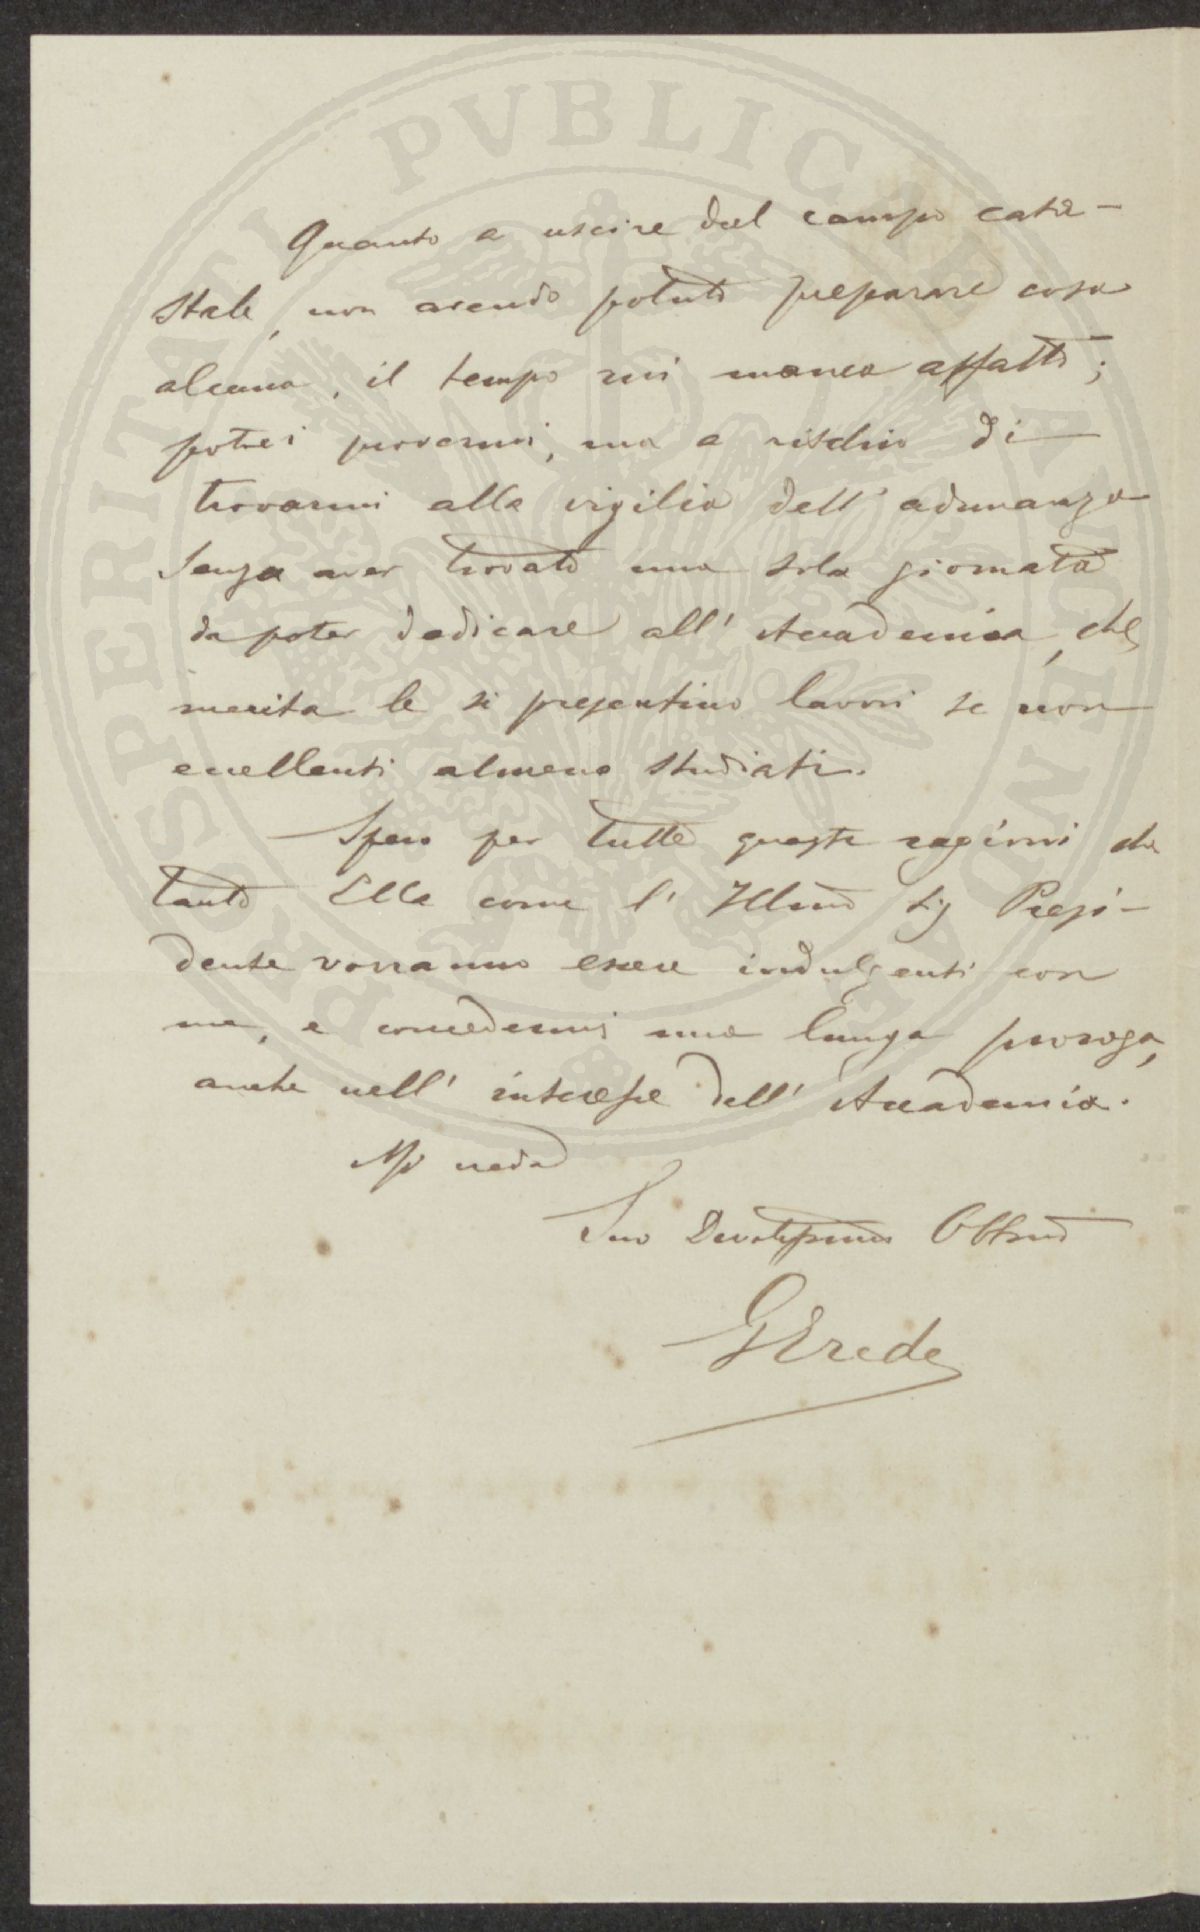 PROSPERITATI PVBLICAE AVGENDAE
Quanto a uscire dal campo cata-
stale, non avendo potuto preparare cosa
alcuna, il tempo mi manca affatto;
potrei provarmi, ma a rischio di
trovarmi alla vigilia dell' adunanza
senza aver trovato una sola giornata
da poter dedicare all' Accademia, che
merita le si presentino lavori se non
eccellenti almeno studiati.
Spero per tutte queste ragioni che
tanto Ella come l' Illmo Sig Presi-
dente vorranno essere indulgenti con
me, e concedermi una lunga proroga,
anche nell' interesse dell' Accademia.
Mi creda
Suo Devotissimo Obbmo
GErede